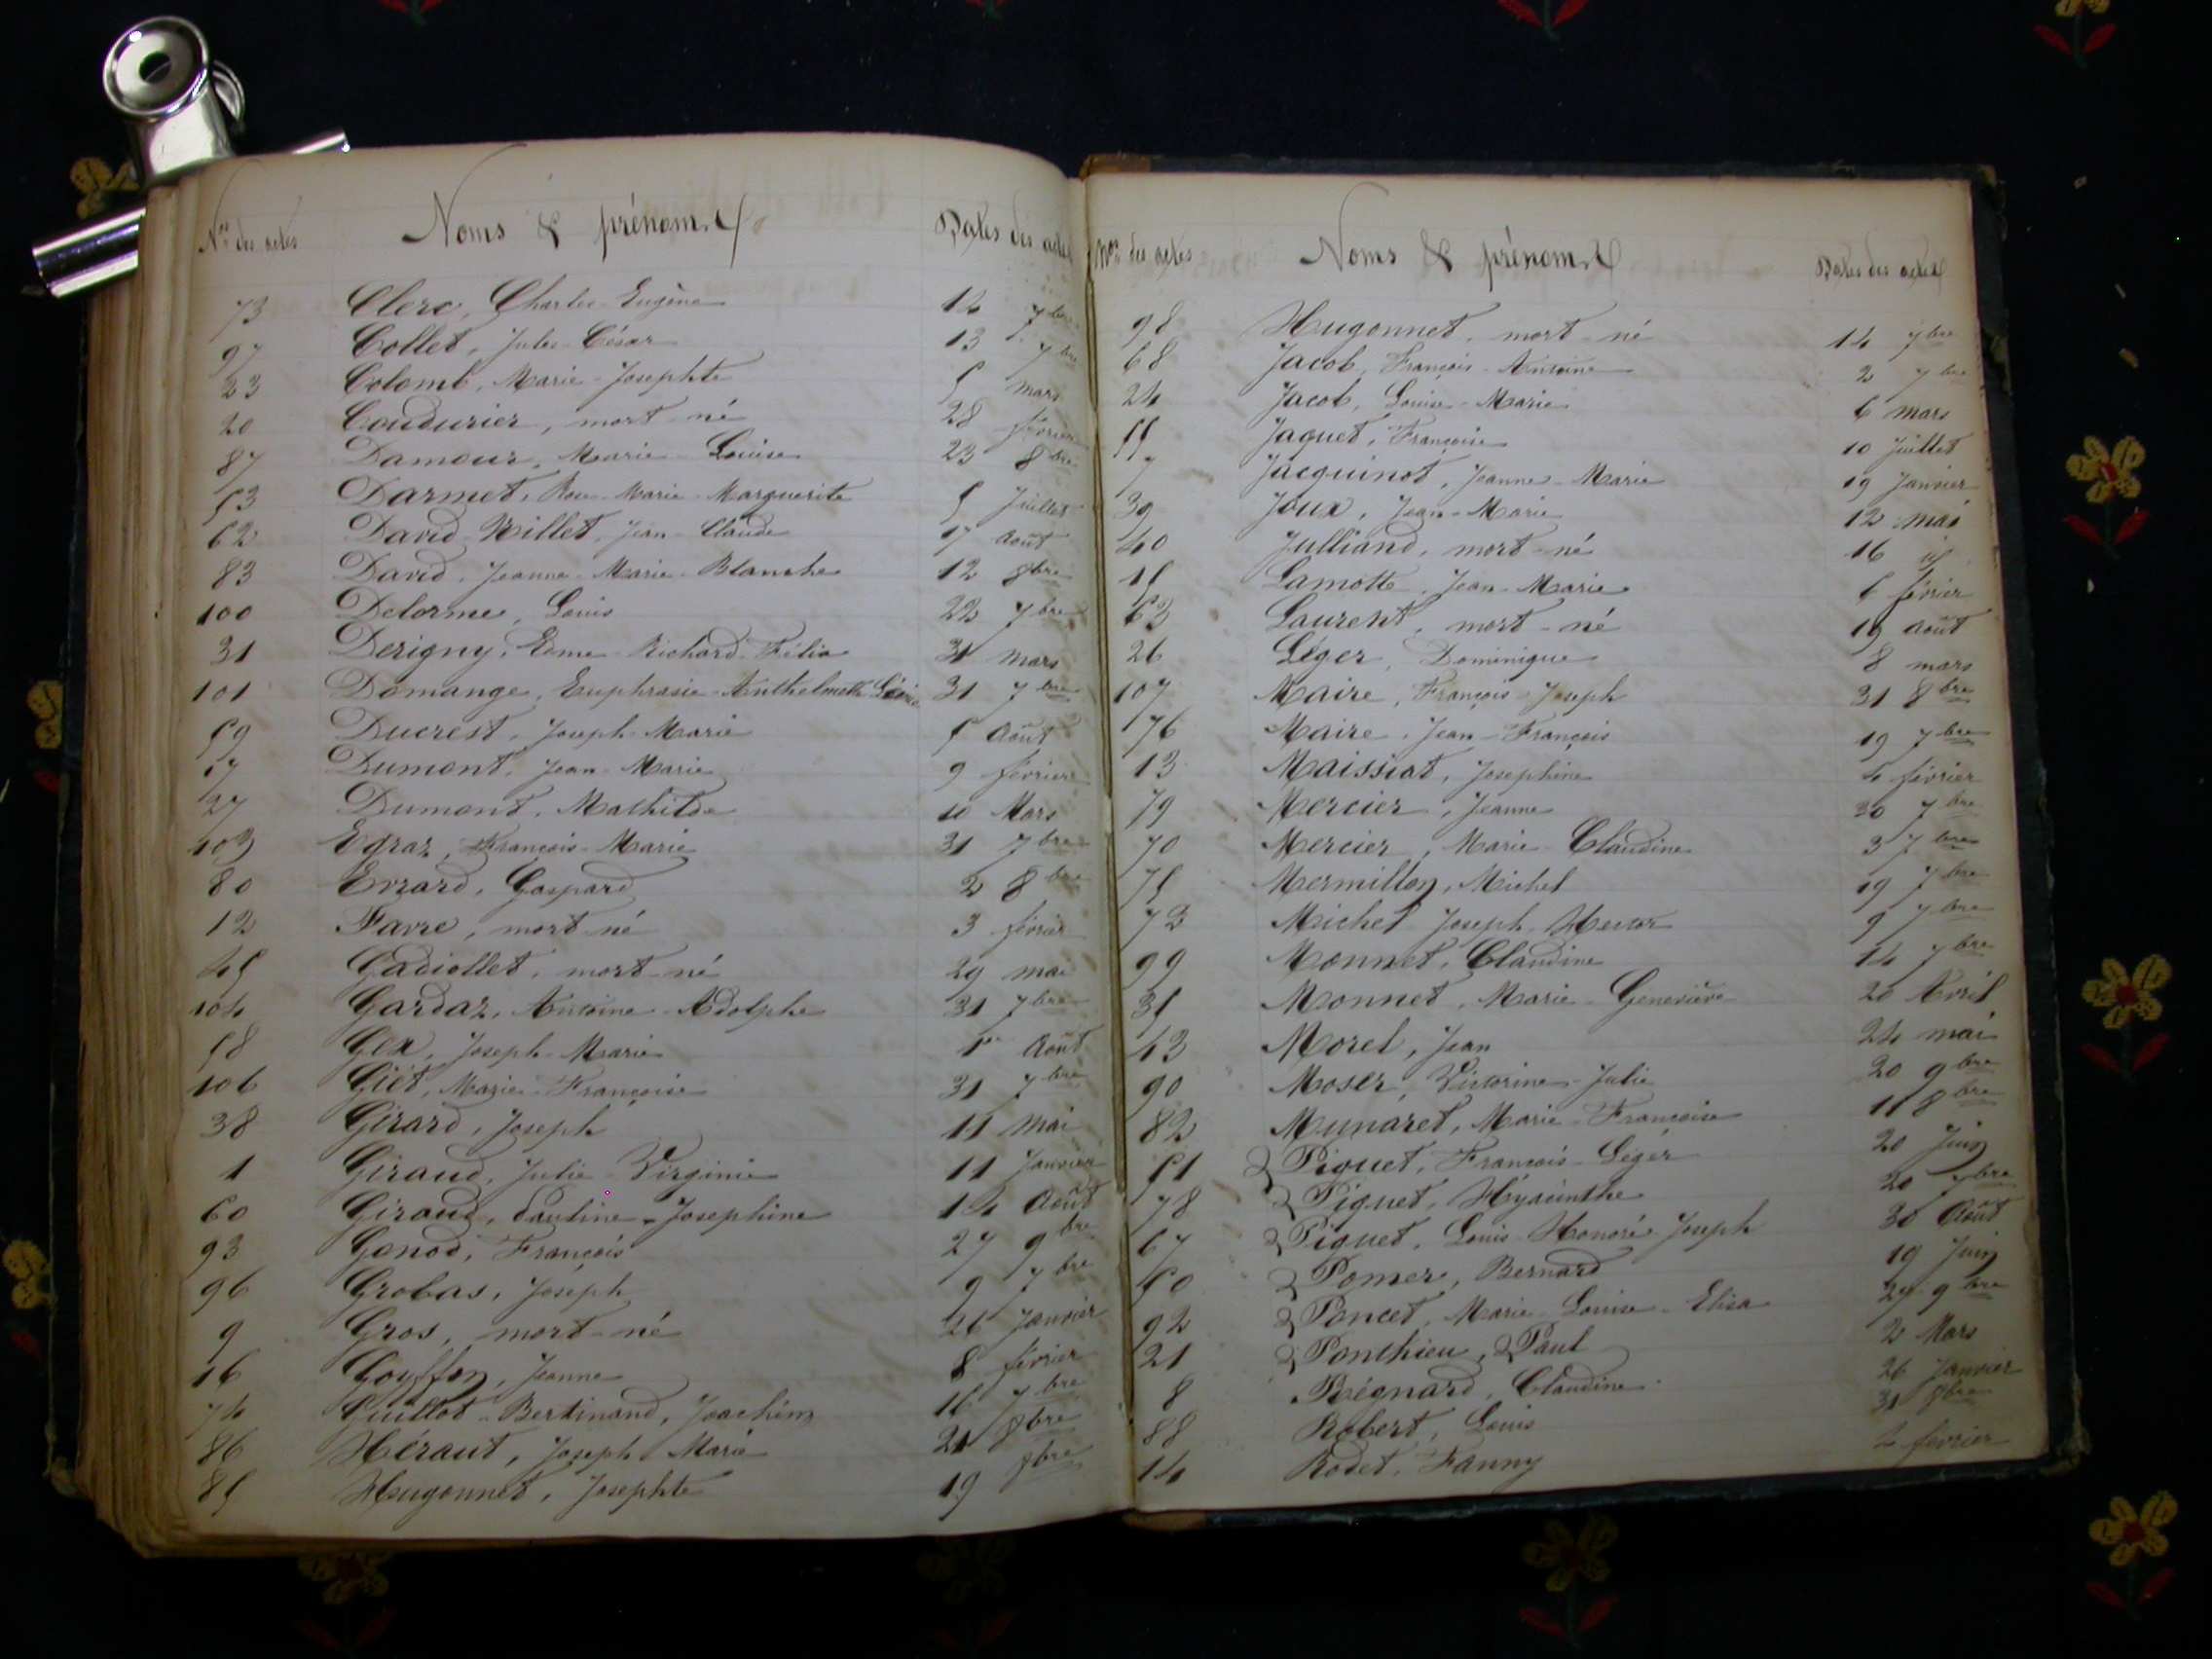 Nos des actes Noms & prénoms Dates des actes
73 Clerc, Charles-Eugène 14 7bre
97 Collet, Jules-César 13 7bre
23 Colomb, Marie-Josephte 5 mars
20 Coudurier, mort-né 28 février
87 Damour, Marie-Louise 23 8bre
53 Darmet, Rose-Marie-Marguerite 5 Juillet
62 David-Nillet, Jean-Claude 17 août
83 David, Jeanne-Marie-Blanche 12 8bre
100 Delorme, Louis 22 7bre
31 Derigny, Edme-Richard-Félix 31 mars
101 Domange, Euphrasie-Anthelmette 31 7bre
59 Ducrest, Joseph-Marie 5 Août
17 Dumont, Jean-Marie 9 février
27 Dumont, Mathilde 10 Mars
103 Egraz, François-Marie 31 7bre
80 Evrard, Gaspard 2 8bre
12 Favre, mort-né 3 février
45 Gadiollet, mort-né 29 mai
104 Gardaz, Antoine-Adolphe 31 7bre
58 Gex, Joseph-Marie 1er Août
106 Giét, Marie-Françoise 31 7bre
38 Girard, Joseph 11 mai
1 Giraud, Julie-Virginie 11 Janvier
60 Giraud, Pauline-Josephine 14 Août
93 Gonod, François 27 9bre
96 Grobas, Joseph 9 7bre
9 Gros, mort-né 26 Janvier
16 Goyffon, Jeanne 8 février
74 Guillot-Bertinand, Joachim 16 7bre
86 Héraut, Joseph-Marie 21 8bre
85 Hugonnet, Josephte 19 8bre
Nos des actes Noms & prénoms Dates des actes
98 Hugonnet, mort-né 14 7bre
68 Jacob, François-Antoine 2 7bre
24 Jacob, Louise-Marie 6 mars
55 Jaquet, Françoise 10 Juillet
7 Jacquinot, Jeanne-Marie 19 Janvier
39 Joux, Jean-Marie 12 mai
40 Julliand, mort-né 16 id
15 Lamotte, Jean-Marie 6 février
63 Laurent, mort-né 19 août
26 Léger, Dominique 8 mars
107 Maire, François-Joseph 31 8bre
76 Maire, Jean-François 19 7bre
13 Maissiat, Josephine 4 février
79 Mercier, Jeanne 30 7bre
70 Mercier, Marie-Claudine 3 7bre
75 Mermillon, Michel 19 7bre
72 Michel Joseph-Hector 9 7bre
99 Monnet, Claudine 14 7bre
35 Monnet, Marie-Geneviève 20 Avril
43 Morel, Jean 24 mai
90 Moser, Victorine-Julie 20 9bre
82 Munaret, Marie-Françoise 11 8bre
51 Piquet, François-Léger 20 Juin
78 Piquet, Hyacinthe 20 7bre
67 Piquet, Louis-Honoré-Joseph 30 Août
50 Pomer, Bernard 19 Juin
92 Poncet, Marie-Louise-Elisa 27 9bre
21 Ponthieu, Paul 2 Mars
8 Régnard, Claudine 26 Janvier
88 Robert, Louis 31 8bre
14 Rodet, Fanny 4 février